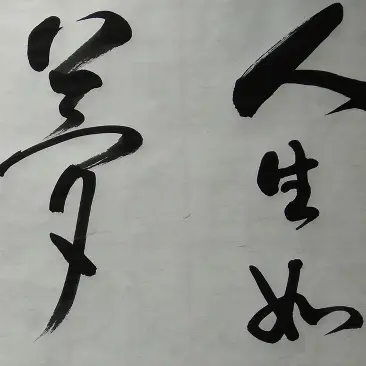 人生如
夢